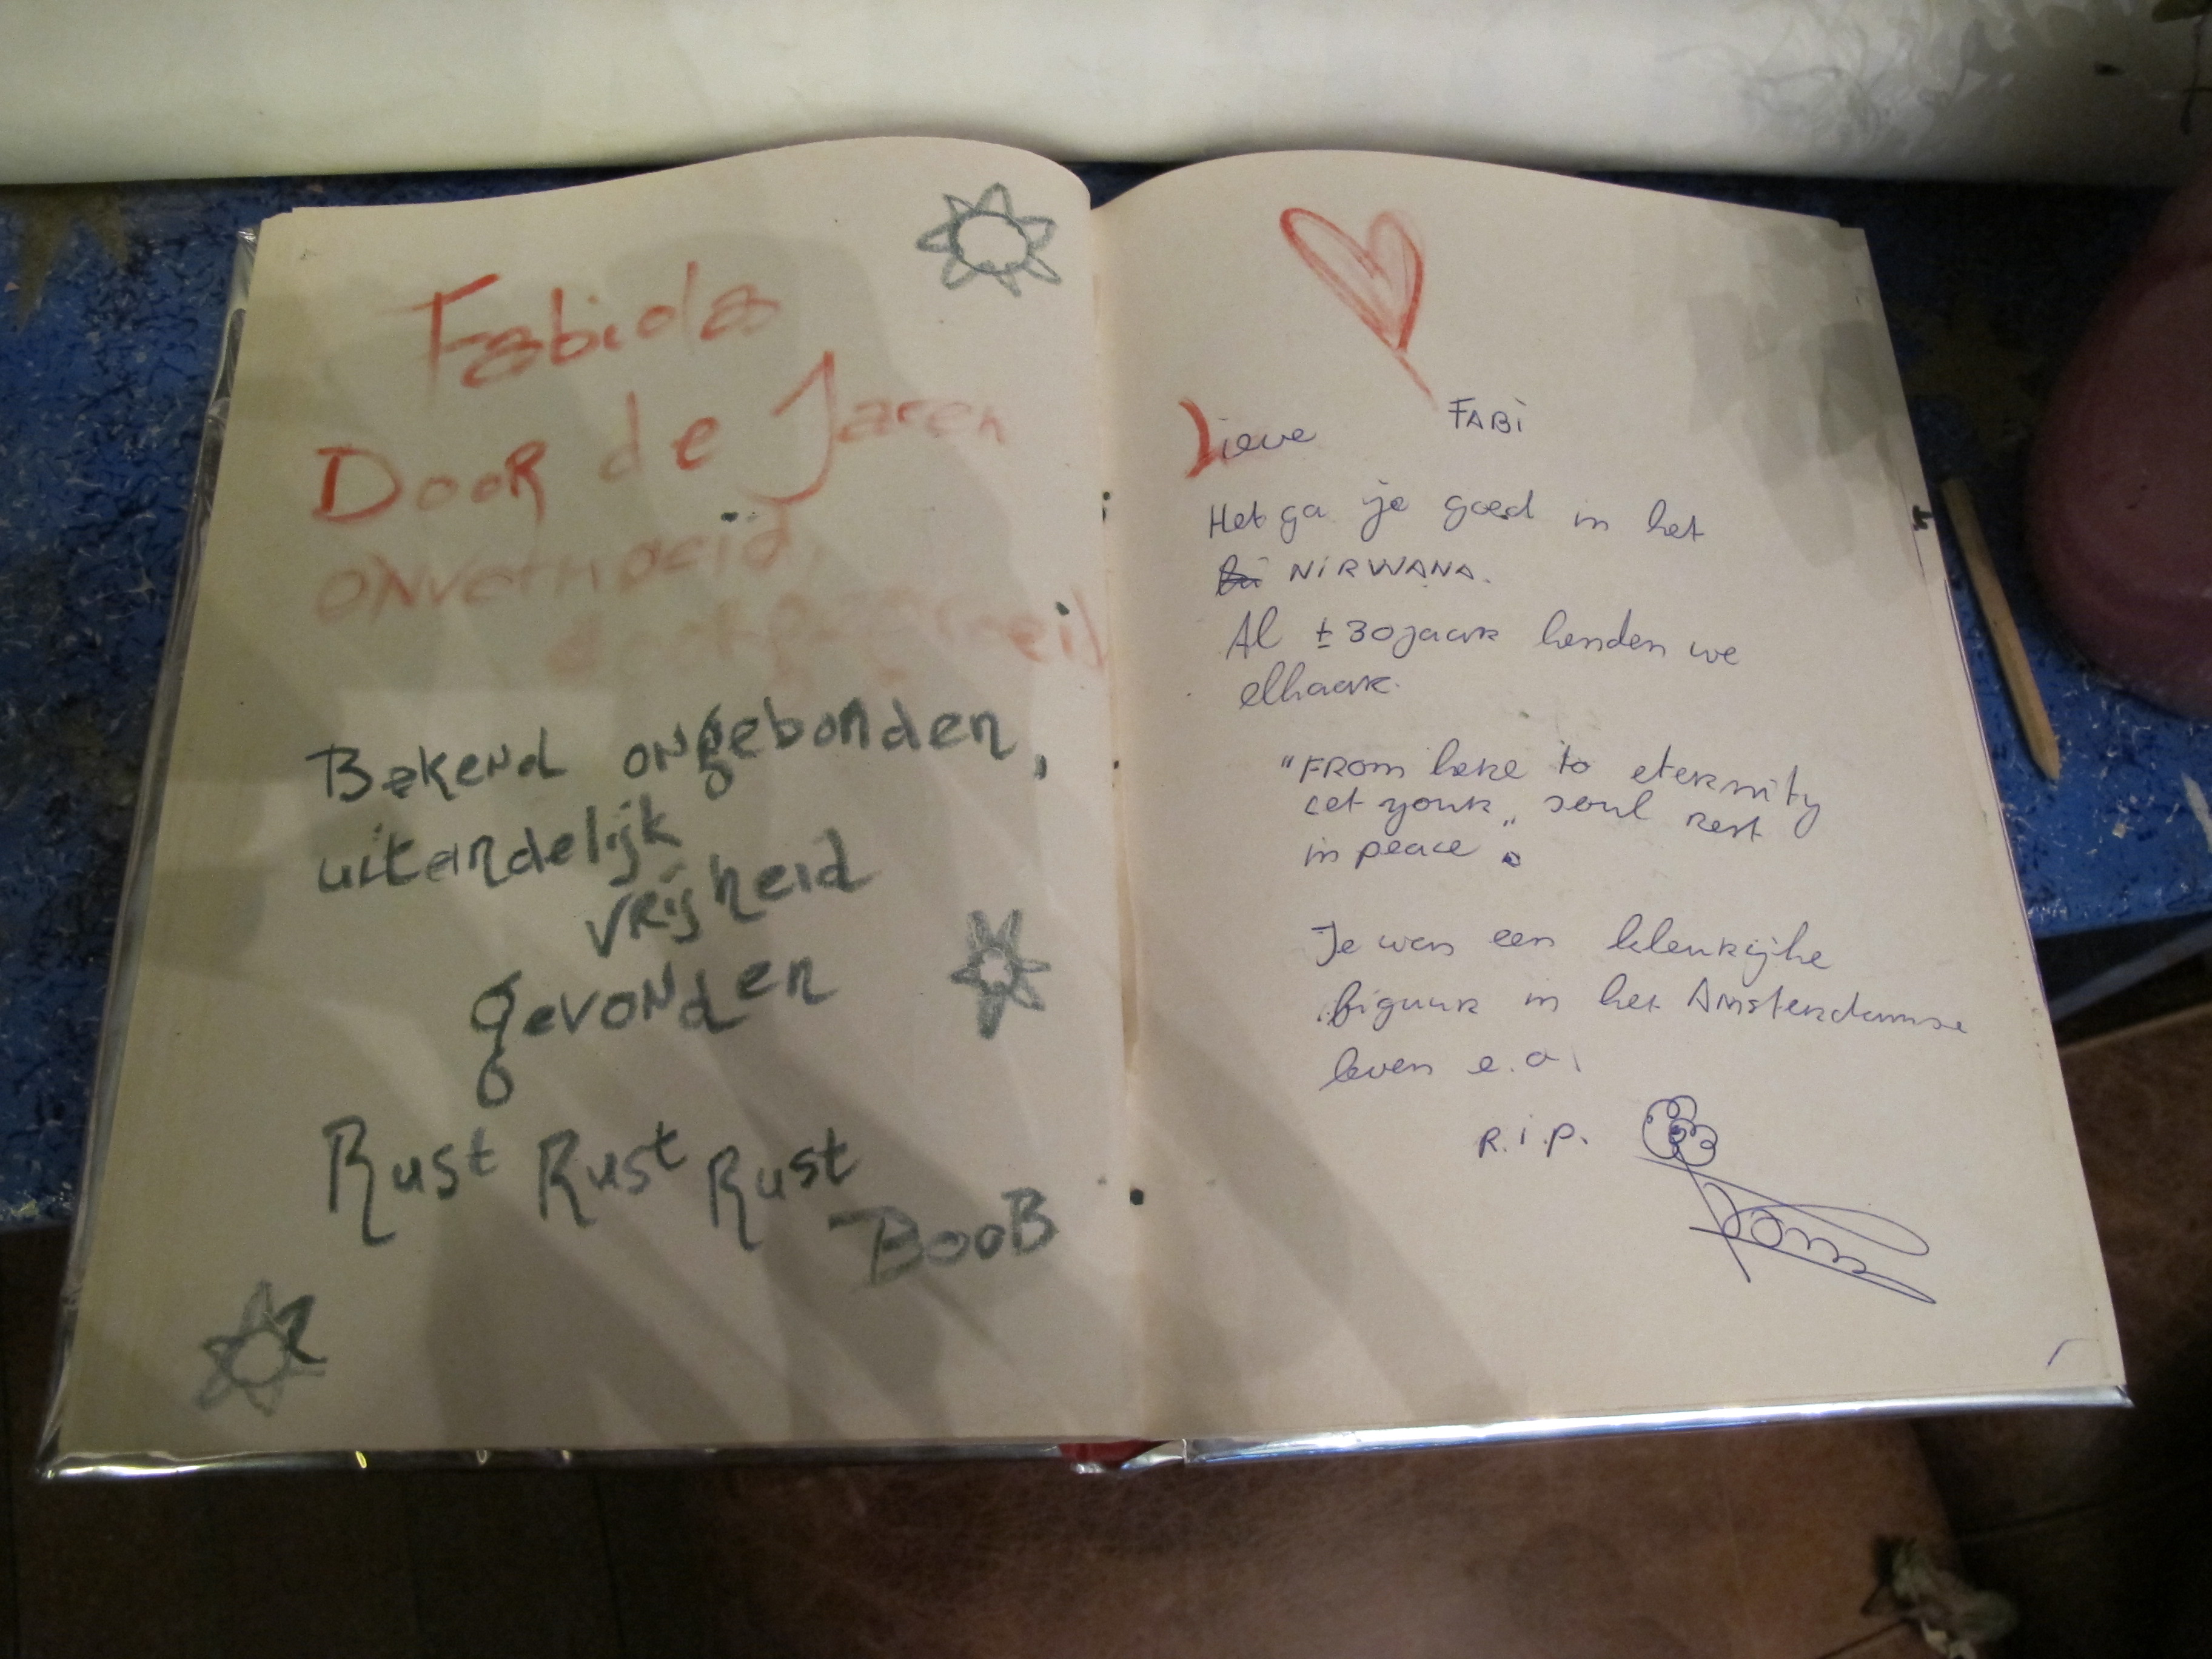 Fabiola
Door de Jaren
Bekend ongebonden,
uitandelijk
vrijheid
gevonden
Rust Rust Rust
BooB
Lieve FABi
Het ga je goed in het
NiRWANA.
Al ± 30 jaar kenden we
elkaar.
"FROM here to eternity
Let your soul rest
in peace".
Je was een kleurijke
figuur in het Amsterdamse
leven e.o.
R.i.p.